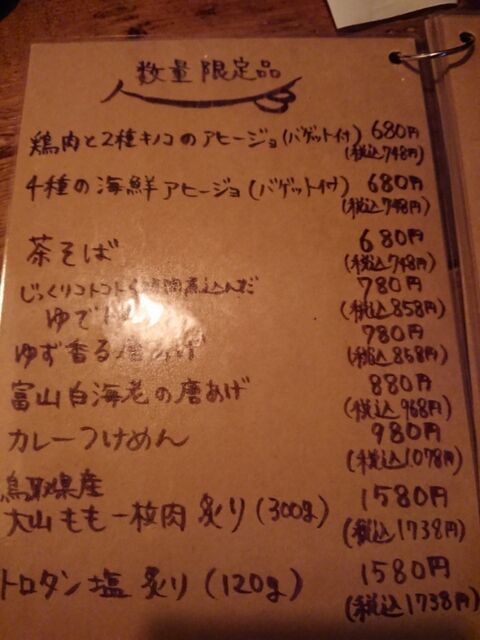 数量限定品
鶏肉と2種キノコのアヒージョ(バゲット付) 680円
(税込748円)
4種の海鮮アヒージョ(バゲット付) 680円
(税込748円)
茶そば 680円
(税込748円)
じっくりコトコト 煮込んだ 780円
ゆで (税込858円)
ゆず香る唐あげ 780円
(税込858円)
富山白海老の唐あげ 880円
(税込968円)
カレーつけめん 980円
(税込1078円)
鳥取県産
大山もも一枚肉 炙り(300g) 1580円
(税込1738円)
トロタン塩 炙り(120g) 1580円
(税込1738円)